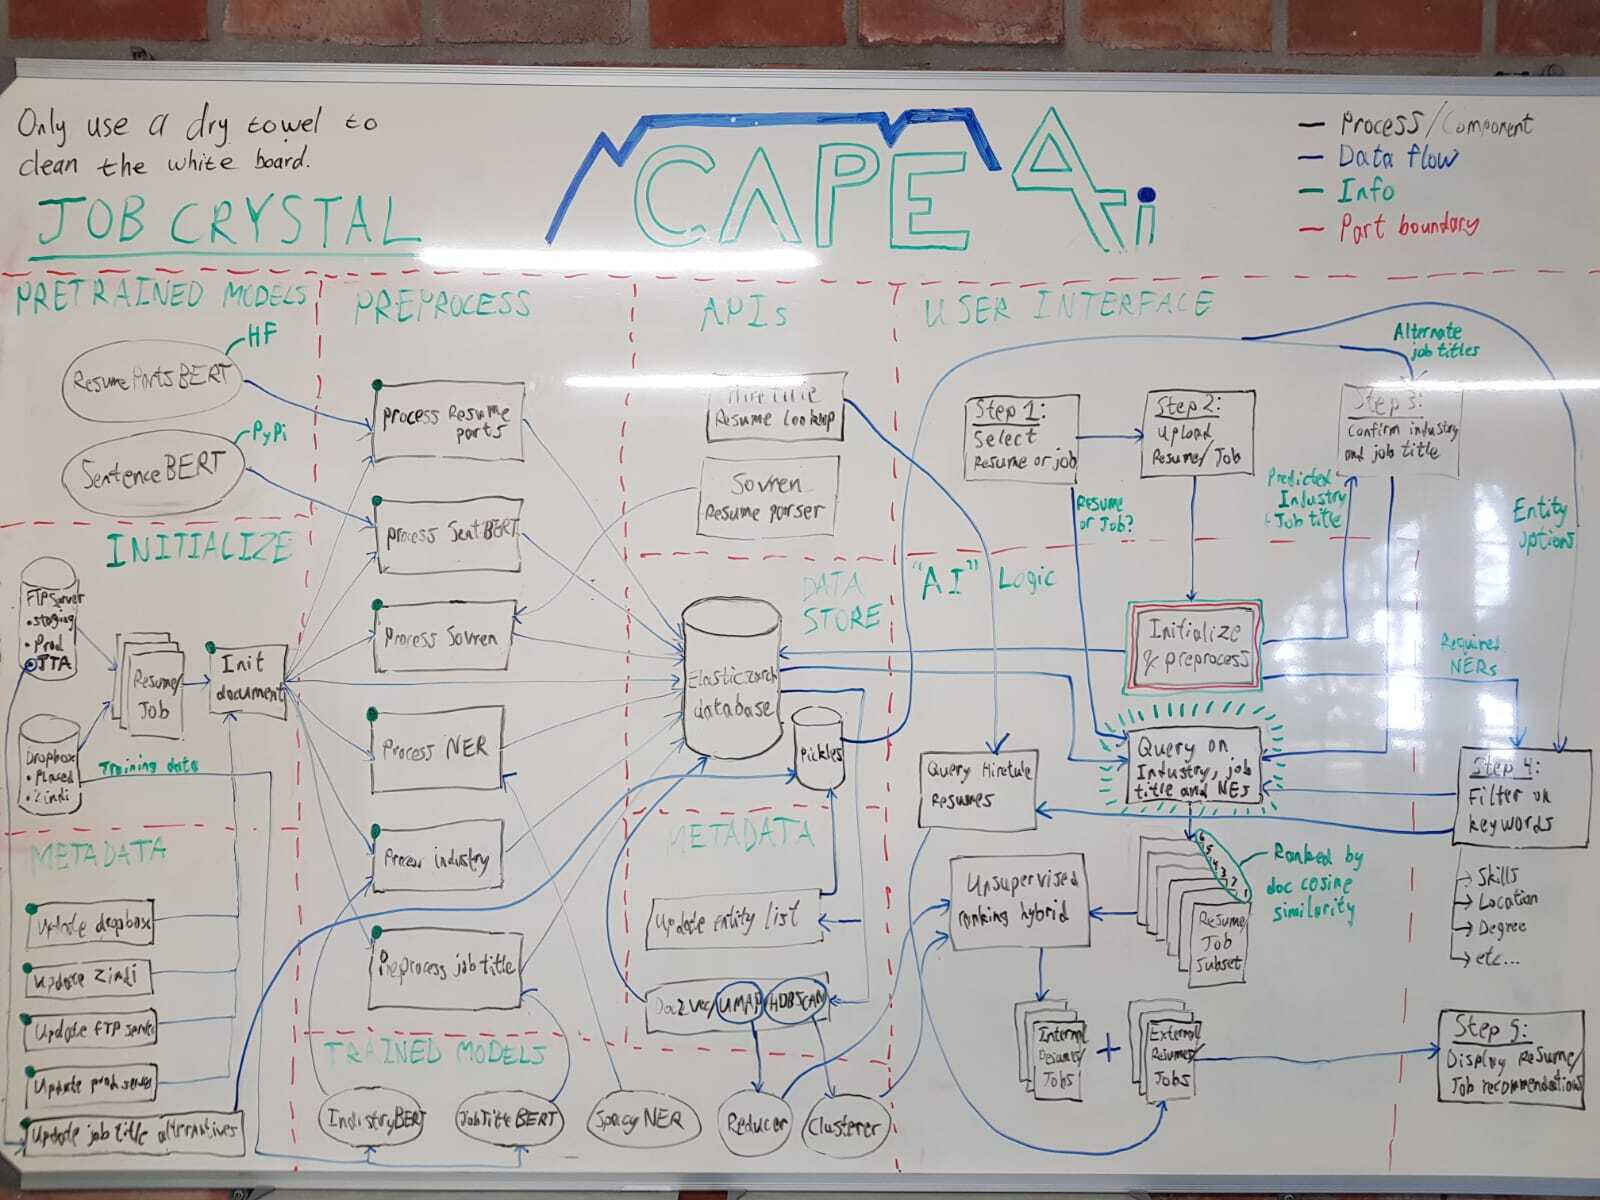 Only use a dry towel to
clean the white board.
JOB CRYSTAL
CAPE Ai
Process/Component
Data flow
Info
Part boundary
PRETRAINED MODELS
HF
ResumePartsBERT
PyPi
SentenceBERT
INITIALIZE
FTPServer
• Staging
• Prod
• JTA
Resume/
Job
Init
document
Dropbox
• Placed
• Zindi
Training data
METADATA
Update dropbox
Update Zindi
Update FTP server
Update prod server
Update job title alternatives
PREPROCESS
process Resume
parts
process SentBERT
Process Sovren
Process NER
Process industry
Preprocess job title
TRAINED MODELS
IndustryBERT
JobTitleBERT
Spacy NER
Reducer
Clusterer
APIs
Hiretule
Resume Lookup
Sovren
Resume parser
DATA
STORE
Elasticsearch
database
Pickles
METADATA
Update entity list
Doc2Vec/UMAP/HDBSCAN
USER INTERFACE
Alternate
job titles
Step 1:
Select
Resume or job
Step 2:
Upload
Resume/Job
Step 3:
Confirm industry
and job title
Resume
or Job?
Predicted
Industry
+ Job title
Entity
options
"AI" Logic
Initialize
& preprocess
Required
NERs
Query Hiretule
Resumes
Query on
Industry, job
title and NEs
Step 4:
Filter on
keywords
Skills
Location
Degree
etc...
6
5
4
3
2
1
Ranked by
doc cosine
similarity
Resume/
Job
Subset
Unsupervised
ranking hybrid
Internal
Resumes/
Jobs
+
External
Resumes/
Jobs
Step 5:
Display Resume/
Job recommendations